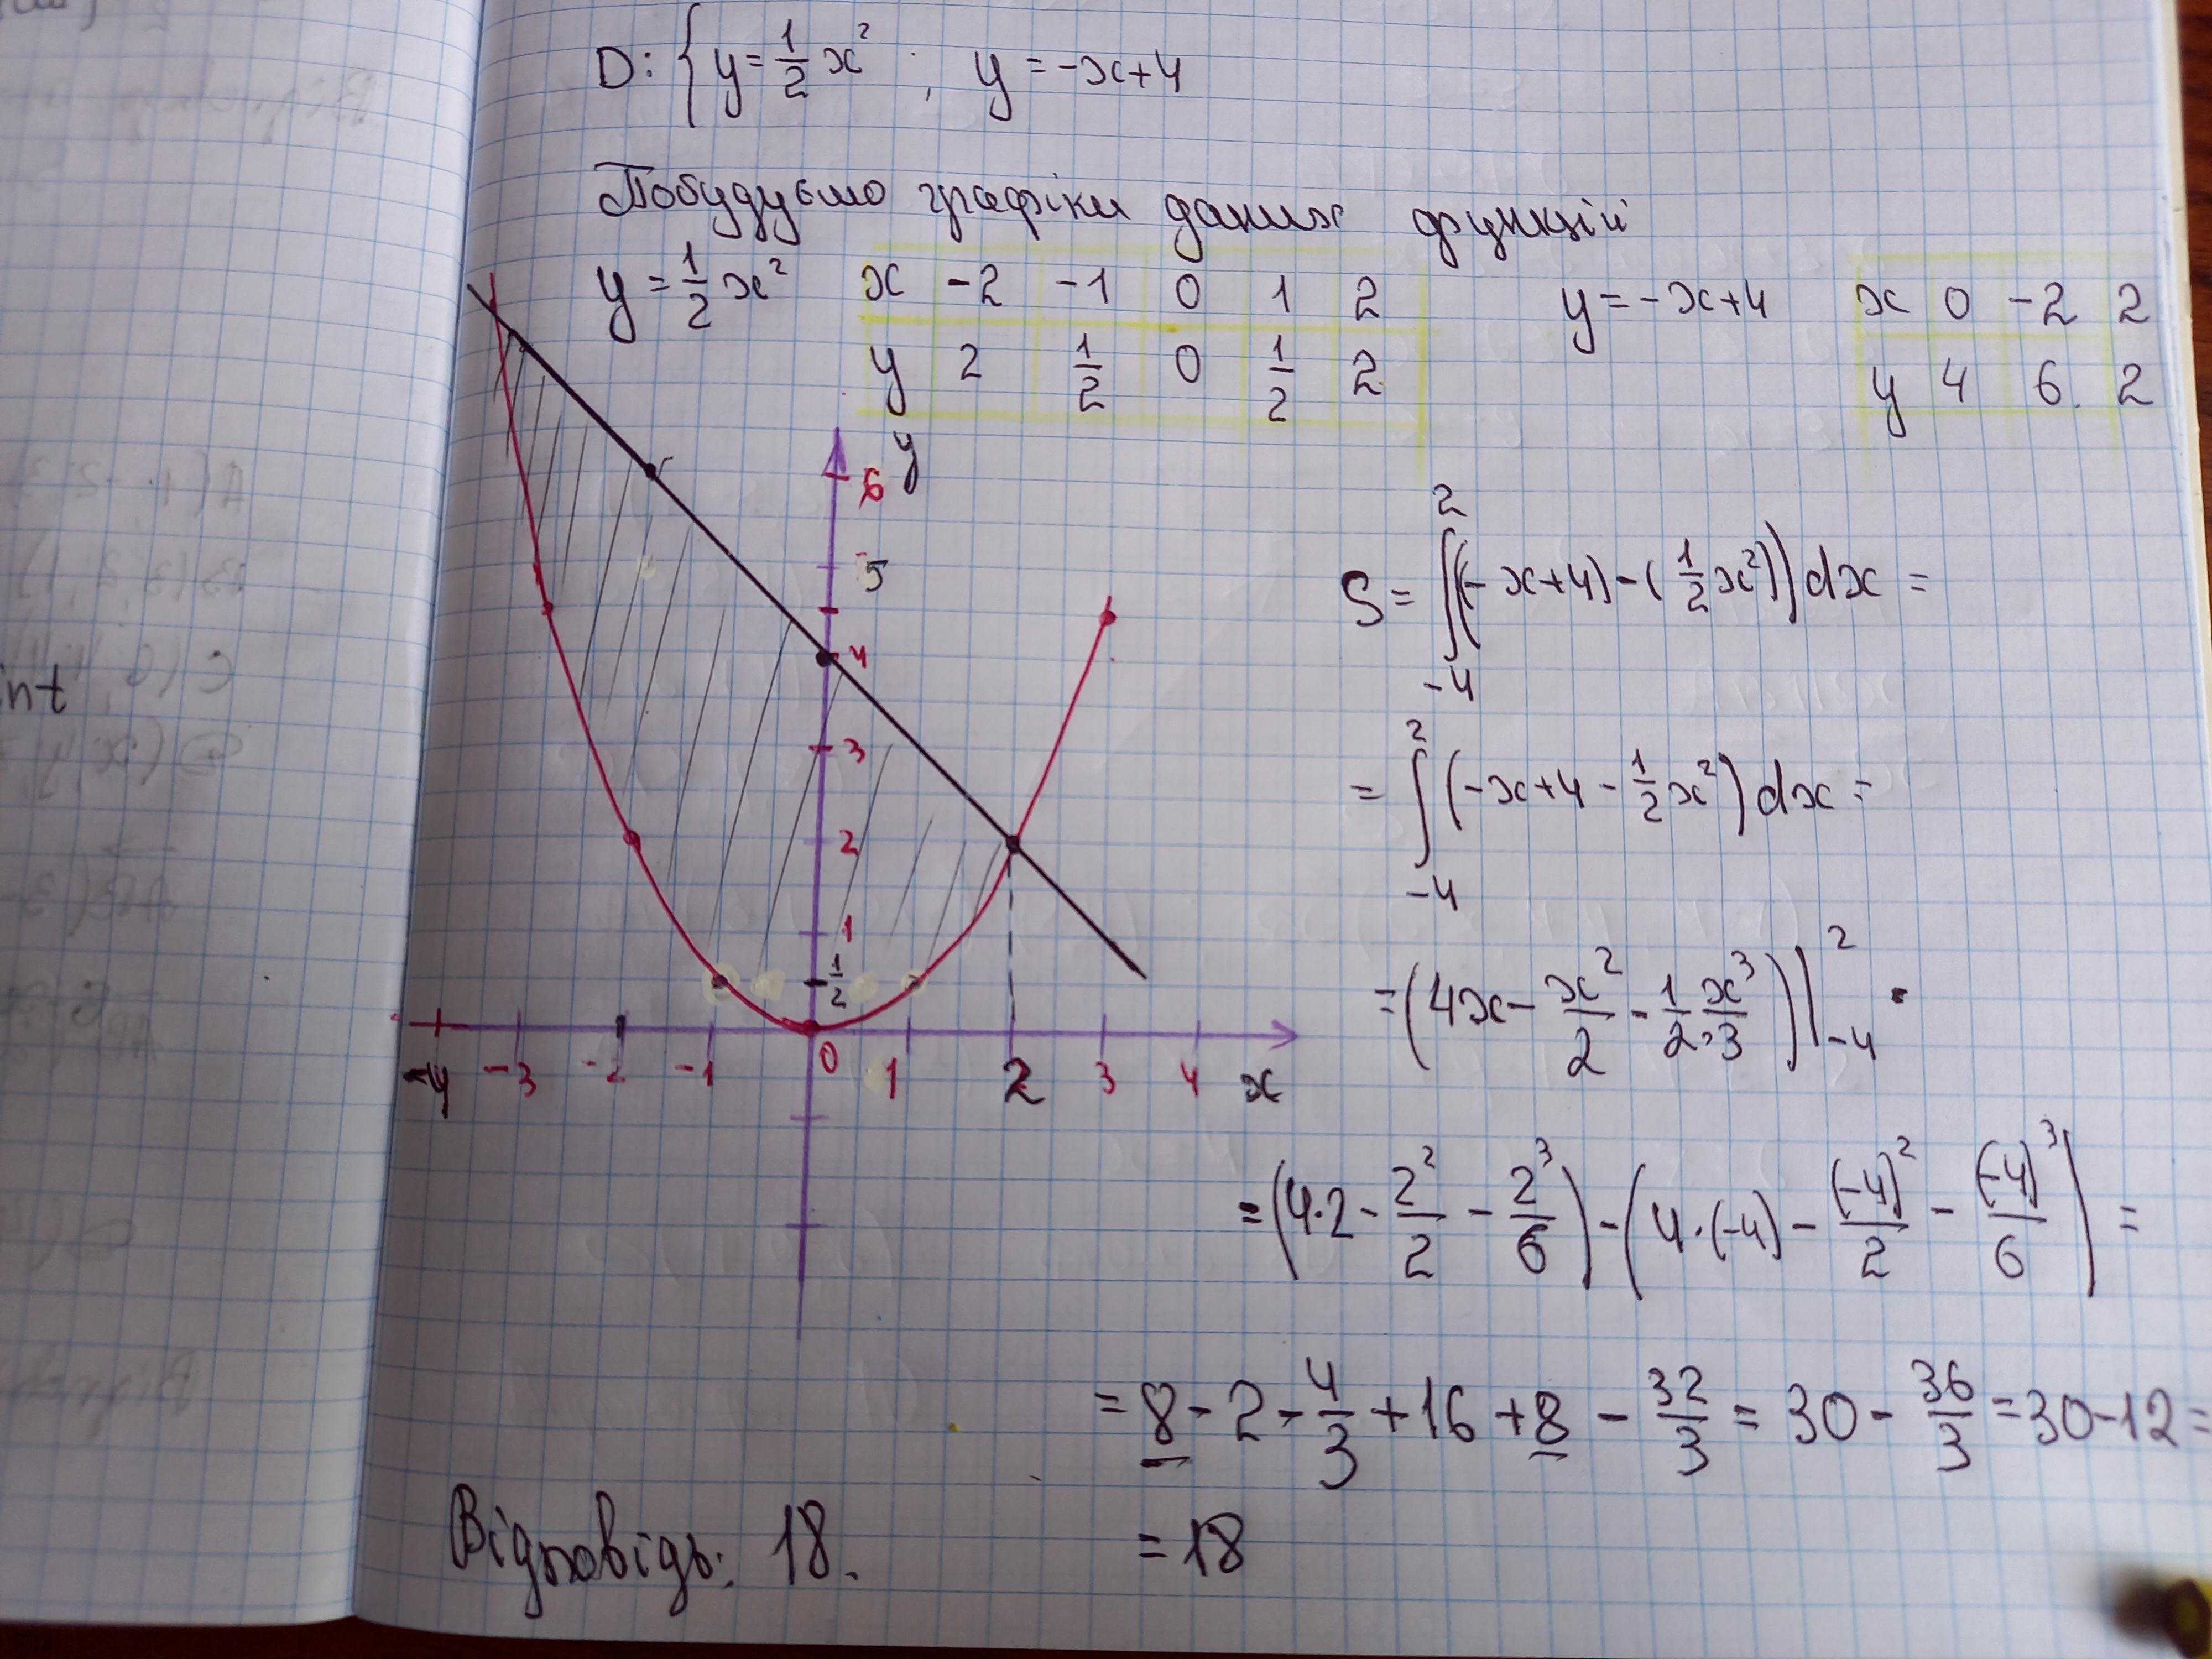 D: { y = 1/2 x² ; y = -x+4
Побудуємо графіки даних функцій
y = 1/2 x²   x -2 -1 0 1 2   y = -x+4   x 0 -2 2
y 2 1/2 0 1/2 2   y 4 6 2
y
6
5
4
3
2
1
1/2
-4 -3 -2 -1 0 1 2 3 4 x
S = ∫₋₄² ((-x+4) - (1/2 x²)) dx =
= ∫₋₄² (-x+4 - 1/2 x²) dx =
= (4x - x²/2 - 1/2 · x³/3) |₋₄²
= (4·2 - 2²/2 - 2³/6) - (4·(-4) - (-4)²/2 - (-4)³/6) =
= 8 - 2 - 4/3 + 16 + 8 - 32/3 = 30 - 36/3 = 30 - 12 =
= 18
Відповідь: 18.
int